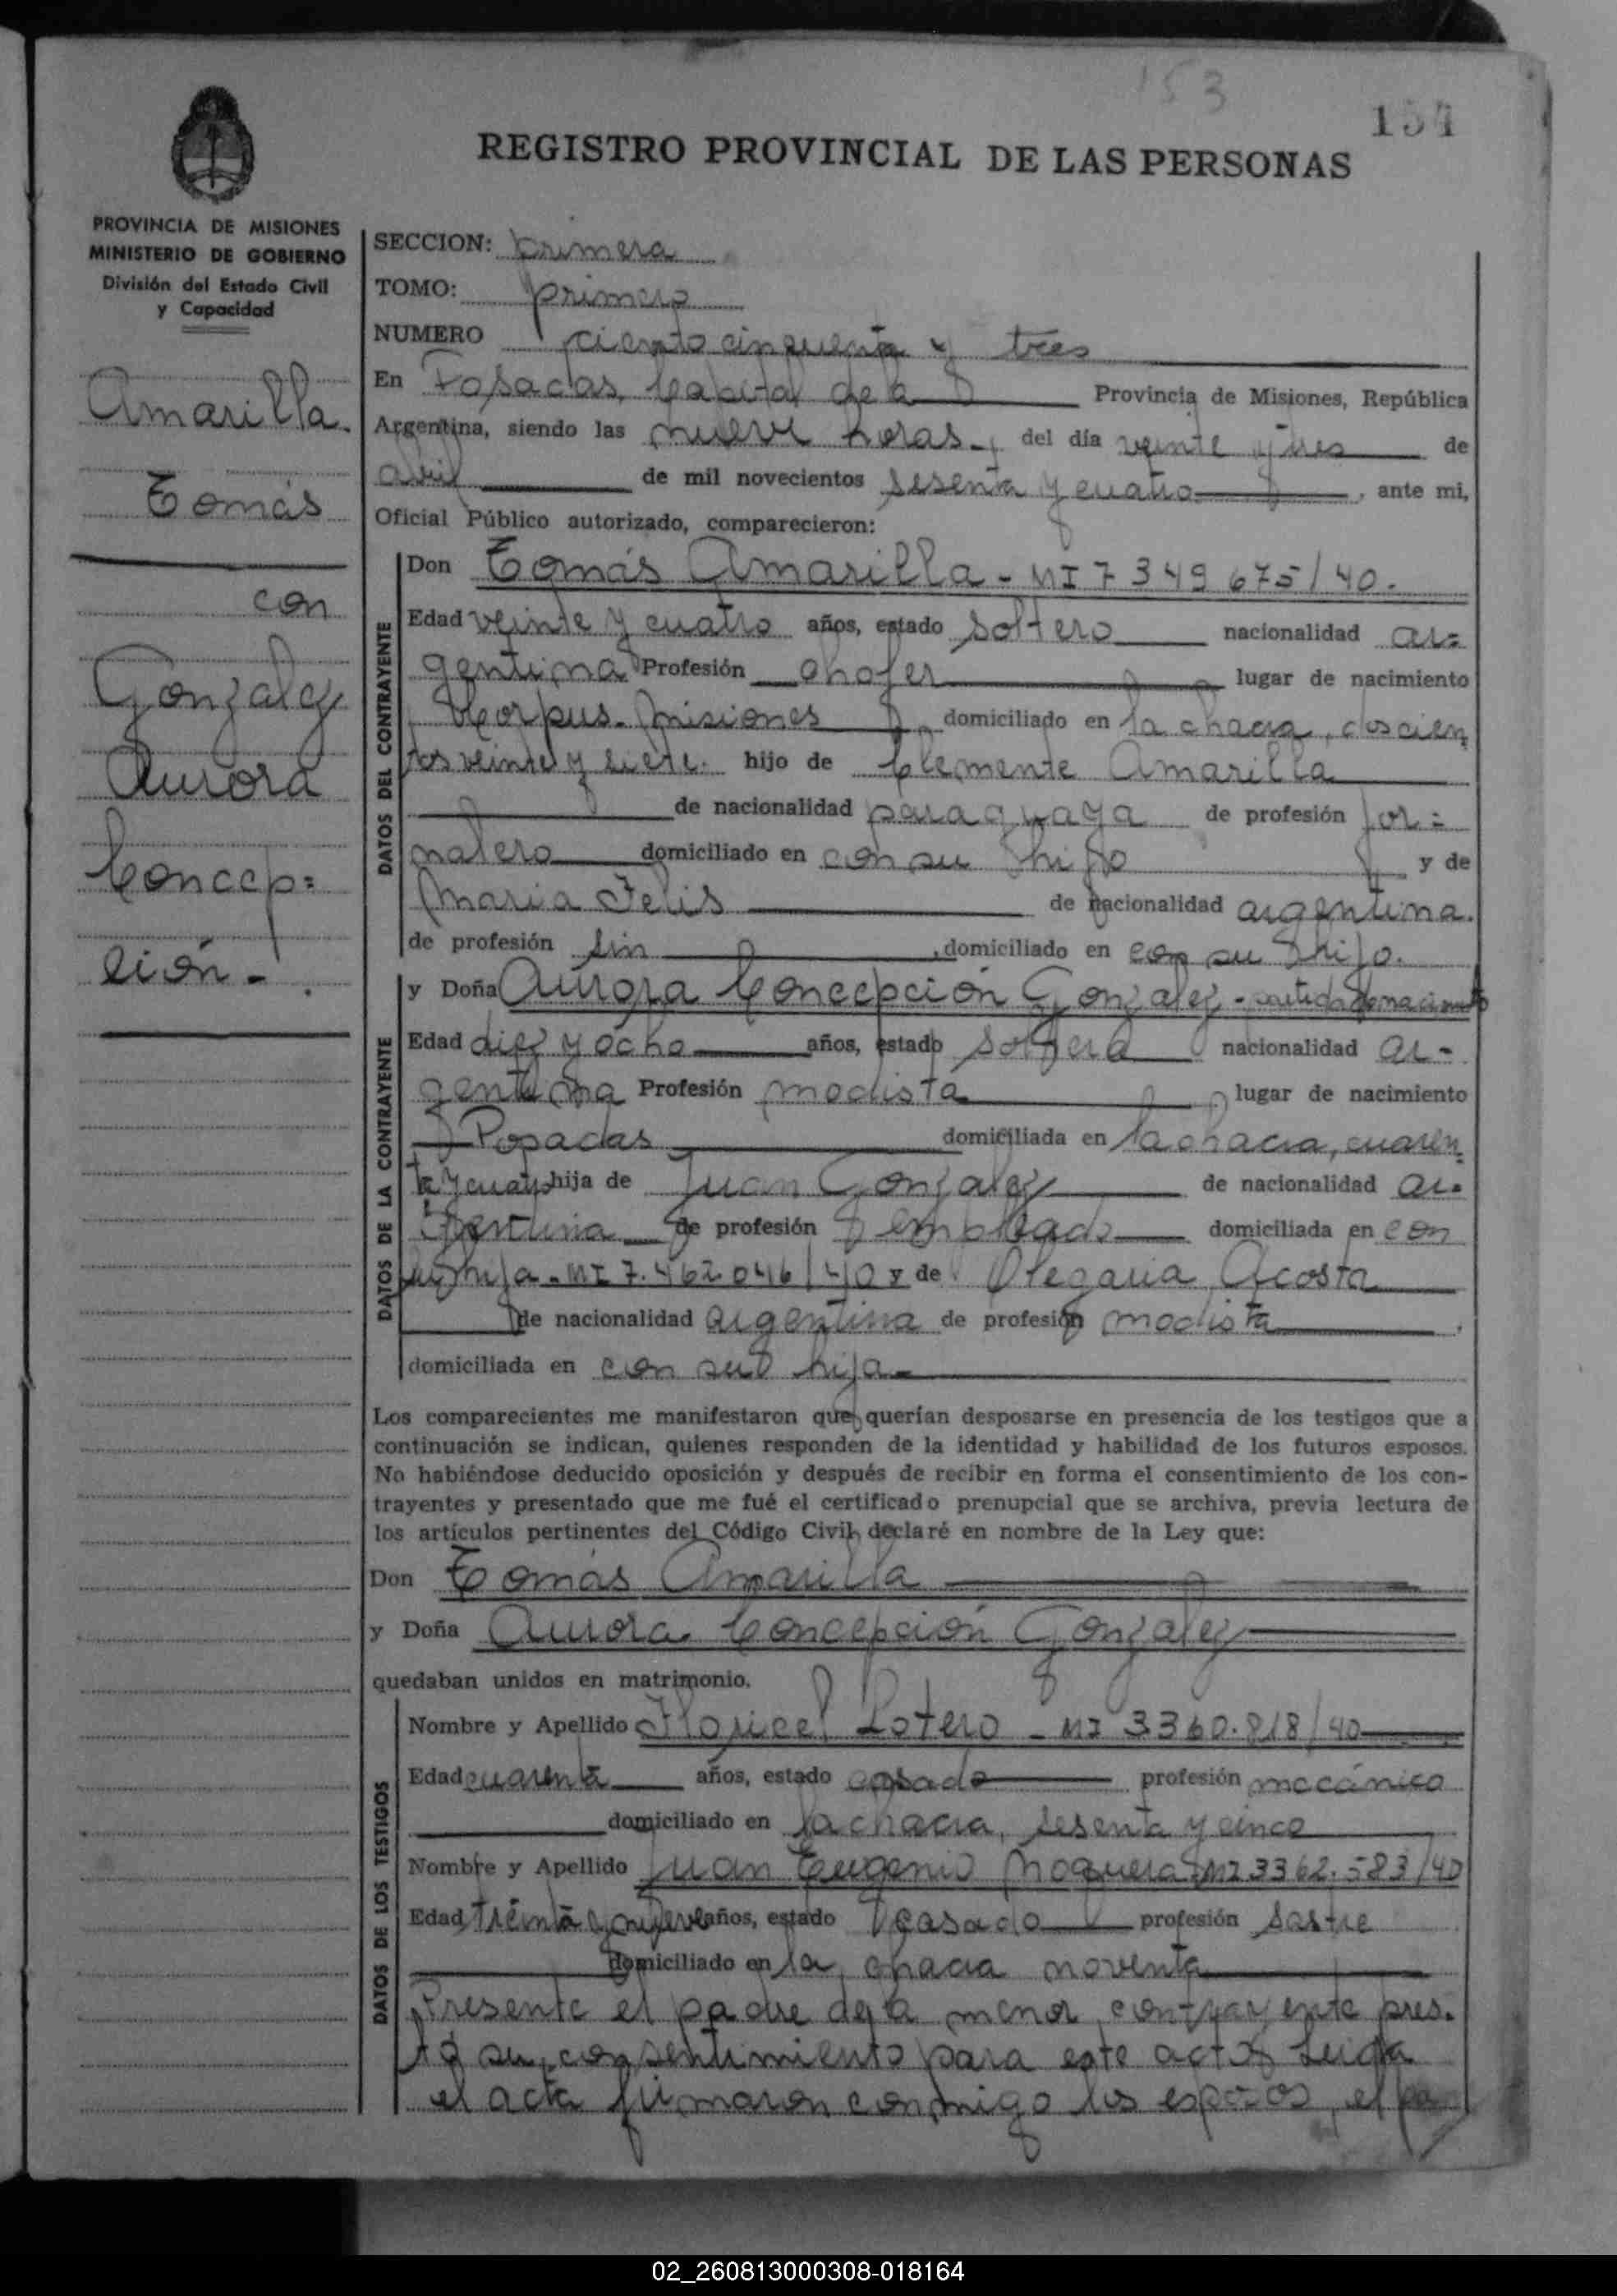 153
154
REGISTRO PROVINCIAL DE LAS PERSONAS
PROVINCIA DE MISIONES
MINISTERIO DE GOBIERNO
División del Estado Civil
y Capacidad
Amarilla
Tomás
con
Gonzalez
Aurora
Concep=
ción-
SECCION: primera
TOMO: primero
NUMERO ciento cinquenta y tres
En Posadas, Capital de la Provincia de Misiones, República
Argentina, siendo las nueve horas, del día veinte y tres de
abril de mil novecientos sesenta y cuatro, ante mi,
Oficial Público autorizado, comparecieron:
DATOS DEL CONTRAYENTE
Don Tomás Amarilla - MI 7349675/40.
Edad veinte y cuatro años, estado soltero nacionalidad ar=
gentina Profesión chofer lugar de nacimiento
Corpus. Misiones domiciliado en la chacra, doscien
tos veinte y siete. hijo de Clemente Amarilla
de nacionalidad paraguaya de profesión jor=
nalero domiciliado en con su hijo y de
Maria Felis de nacionalidad argentina.
de profesión sin, domiciliado en con su hijo.
DATOS DE LA CONTRAYENTE
y Doña Aurora Concepción Gonzalez - partida de nacimiento
Edad diez y ocho años, estado soltera nacionalidad ar-
gentina Profesión modista lugar de nacimiento
Posadas domiciliada en la chacra, cuaren
ta y cuatro hija de Juan Gonzalez de nacionalidad ar-
gentina de profesión empleado domiciliada en con
su hija - MI 7.462.046/40 y de Olegaria Acosta
de nacionalidad argentina de profesión modista.
domiciliada en con su hija-
Los comparecientes me manifestaron que querían desposarse en presencia de los testigos que a
continuación se indican, quienes responden de la identidad y habilidad de los futuros esposos.
No habiéndose deducido oposición y después de recibir en forma el consentimiento de los con-
trayentes y presentado que me fué el certificado prenupcial que se archiva, previa lectura de
los artículos pertinentes del Código Civil, declaré en nombre de la Ley que:
Don Tomás Amarilla
y Doña Aurora Concepción Gonzalez
quedaban unidos en matrimonio.
DATOS DE LOS TESTIGOS
Nombre y Apellido Floricel Sotero - MI 3360.818/40
Edad cuarenta años, estado casado profesión mecánico
domiciliado en la chacra, sesenta y cinco
Nombre y Apellido Juan Eugenio Noguera - MI 3362.583/40
Edad treinta y nueve años, estado casado profesión sastre
domiciliado en la chacra noventa
Presente el padre de la menor contrayente pres-
tó su consentimiento para este acto. Leida
el acta firmaron conmigo los esposos, el pa
02_260813000308-018164